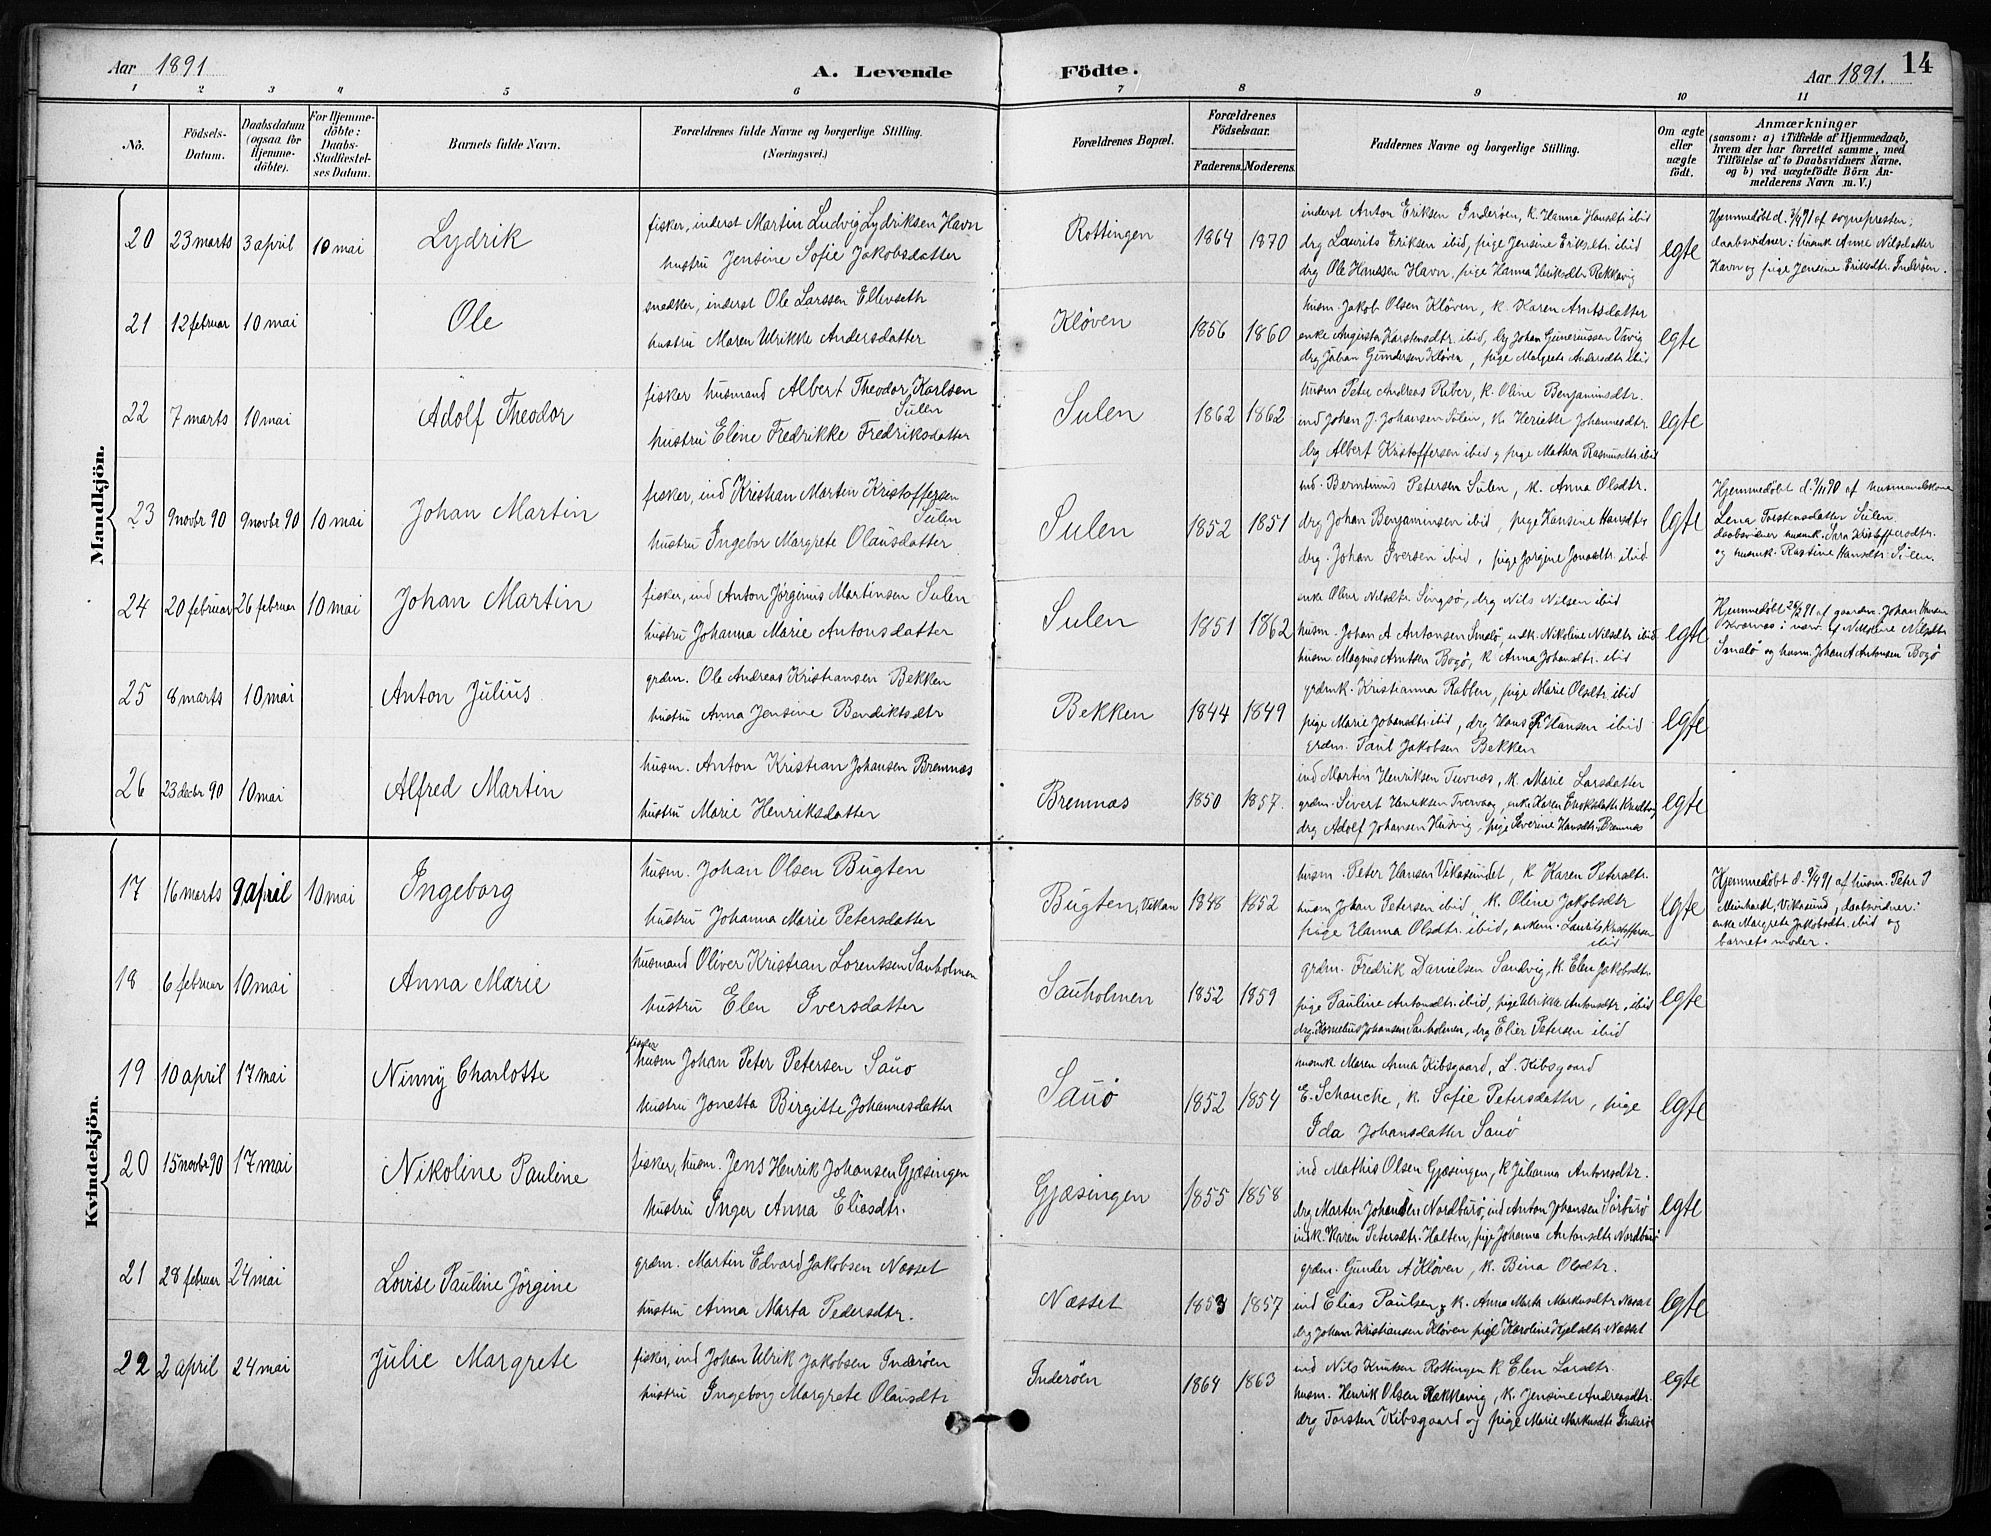 Aar 1891
A. Levende
Födte.
Aar 1891.
14
1 2 3 4 5 6 7 8 9 10 11
No.
Födsels-
Datum.
Daabsdatum
(ogsaa for
Hjemme-
döbte).
For Hjemme-
döbte:
Daabs-
Stadfæstel-
ses Datum.
Barnets fulde Navn.
Forældrenes fulde Navne og borgerlige Stilling.
(Næringsvei.)
Forældrenes Bopæl.
Forældrenes
Födselsaar.
Faderens. Moderens.
Faddernes Navne og borgerlige Stilling.
Om ægte
eller
uægte
født.
Anmærkninger
(saasom: a) i Tilfælde af Hjemmedaab,
hvem der har forrettet samme, med
Tilföielse af to Daabsvidners Navne,
og b) ved uægtefödte Börn An-
melderens Navn m. V.)
Mandkjön.
20 23 marts 3 april 10 mai Lydrik
fisker, inderst Martin Ludvig Lydriksen Havn
hustru Jensine Sofie Jakobsdatter
Rottingen 1864 1870
inderst Anton Eriksen Inderöen, k. Hanna Hansdtr ibid
drg Laurits Eriksen ibid, pige Jensine Eriksdtr. ibid
drg Ole Hanssen Havn, pige Hanna Eriksdtr Rekkavig
egte
Hjemmedøbt d. 3/4 91 af sognepresten;
daabsvidner: husmk Anne Nilsdatter
Havn og pige Jensine Eriksdtr. Inderöen.
21 12 februar 10 mai Ole
snedker, inderst Ole Larssen Ellevseth
hustru Maren Ulrikke Andersdatter
Kløven 1856 1860
husm. Jakob Olsen Kløven, k. Karen Arntsdatter
enke Augusta Karstensdtr. ibid, drg Johan Guneriussen Vavig
drg Johan Gundersen Kløven, pige Margrete Andersdtr ibid
egte
22 7 marts 10 mai Adolf Theodor
fisker husmand Albert Theodor Karlsen
Sulen
hustru Eline Fredrikke Fredriksdatter
Sulen 1862 1862
husm Peter Andreas Riber, k. Oline Benjaminsdtr.
ind Johan J. Johansen Sulen, k. Heriette Johannesdtr.
drg Albert Kristoffersen ibid og pige Mathea Rasmusdtr ibid
egte
23 9 novbr 90 9 novbr 90 10 mai Johan Martin
fisker, ind Kristian Martin Kristoffersen
Sulen
hustru Ingebor Margrete Olausdatter
Sulen 1852 1851
ind. Berntinus Petersen Sulen, k. Anna Olsdtr.
drg Johan Benjaminsen ibid, pige Hansine Hansdtr
drg. Johan Iversen ibid, pige Jørgine Jonasdtr. ibid
egte
Hjemmedøbt d. 9/11 90 af husmandskone
Lena Torstensdatter Sulen.
daabsvidner husmk. Sara Kristoffersdtr.
og husmk. Rastine Hansdtr. Sulen.
24 20 februar 26 februar 10 mai Johan Martin
fisker, ind Anton Jørginus Martinsen Sulen
hustru Johanna Marie Antonsdatter
Sulen 1851 1862
enke Oline Nilsdtr. Singsø, drg Nils Nilsen ibid
husm. Johan A Antonsen Smalø, indk. Nikoline Nilsdtr ibid
husm Magnus Arntsen Bogø, k Anna Johansdtr. ibid
egte
Hjemmedøbt 26/2 91 af gaardm. Johan Hansen
Kværnæs i nærv. af Nikoline Nilsdtr
Smalø og husm. Johan A Antonsen Bogø
25 8 marts 10 mai Anton Julius
grdm. Ole Andreas Kristiansen Bekken
hustru Anna Jensine Bendiktsdtr
Bekken 1844 1849
grdmk. Kristianna Rabben, pige Marie Olsdtr. ibid
pige Marie Johansdtr. ibid, drg Hans P Hansen ibid
grdm. Paul Jakobsen Bekken
egte
26 23 decbr 90 10 mai Alfred Martin
husm. Anton Kristian Johansen Bremnæs
hustru Marie Henriksdatter
Bremnæs 1850 1857.
ind Martin Henriksen Tuvnæs, k. Marie Larsdatter
grdm. Sivert Henriksen Tvervaag, enke Karen Enoksdatter
drg Adolf Johansen Husvig, pige Severine Hansdtr. Bremnæs
egte
Kvindekjön.
17 16 marts 9 april 10 mai Ingeborg
husm. Johan Olsen Bugten
hustru Johanna Marie Petersdatter
Bugten, Vikan 1848 1852
husm. Peter Hansen Vikasundet, k Karen Petersdtr.
husm Johan Petersen ibid, k. Oline Jakobsdtr
pige Hanna Olsdtr. ibid, enkem. Laurits Kristoffersen
ibid
egte
Hjemmedøbt d. 9/4 91 af husm. Peter J
Meinhardt, Vikasund, daabsvidner:
enke Margrete Jakobsdtr. ibid og
barnets moder.
18 6 februar 10 mai Anna Marie
husmand Oliver Kristian Lorentsen Sauholmen
hustru Elen Iversdatter
Sauholmen 1852 1859
grdm. Fredrik Danielsen Sandvig, k. Elen Jakobsdtr.
pige Pauline Antonsdtr. ibid, pige Ulrikke Antonsdtr, ibid
drg. Kornelius Johansen Sauholmen, drg Elier Petersen ibid
egte
19 10 april 17 mai Ninny Charlotte
fisker
husm Johan Peter Petersen Sauø
hustru Jonetta Birgitte Johannesdatter
Sauø 1852 1854
husmk Maren Anna Kibsgaard, L. Kibsgaard
E. Schanche, k. Sofie Petersdatter, pige
Ida Johansdatter Sauø
egte
20 15 novbr 90 17 mai Nikoline Pauline
fisker, husm. Jens Henrik Johansen Gjæsingen
hustru Inger Anna Eliasdtr.
Gjæsingen 1855 1858
ind Mathis Olsen Gjæsingen, k Julianna Antonsdtr.
drg Marten Johansen Nordburø, ind Anton Johansen Sørburø
indk. Karen Petersdtr. Halten, pige Johanna Antonsdtr Nordburø
egte
21 28 februar 24 mai Lovise Pauline Jörgine
grdm. Martin Edvard Jakobsen Næsset
hustru Anna Marta Pedersdtr.
Næsset 1853 1857
grdm. Gunder A Kløven, k. Bina Olsdtr.
ind Elias Paulsen, k. Anna Marta Markusdtr Næsset
drg Johan Kristiansen Kløven pige Karoline Kjelsdtr Næsset
egte
22 2 april 24 mai Julie Margrete
fisker, ind Johan Ulrik Jakobsen Inderöen
hustru Ingeborg Margrete Olausdtr
Inderöen 1864 1863
ind Nils Knutsen Rottingen k Elen Larsdtr.
husm. Henrik Olsen Rækkavig, k. Jensine Andreasdtr.
drg Torsten Kibsgaard og pige Marie Markusdtr Inderö
egte